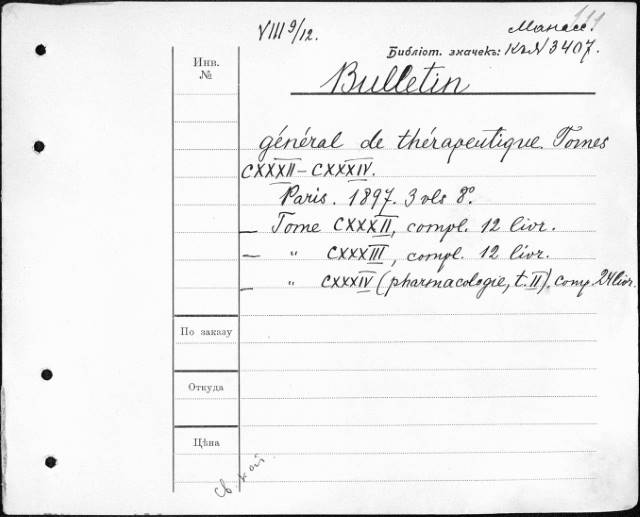 VIII 9/12.
Манас.
Библіот. значекъ: К№ 3407.
Инв. №
Bulletin
général de thérapeutique. Tomes
CXXXII – CXXXIV.
Paris. 1897. 3 vls 8º.
— Tome CXXXII, compl. 12 livr.
— " CXXXIII, compl. 12 livr.
— " CXXXIV (pharmacologie, t. II). comp. 24 livr.
По заказу
Откуда
Цѣна